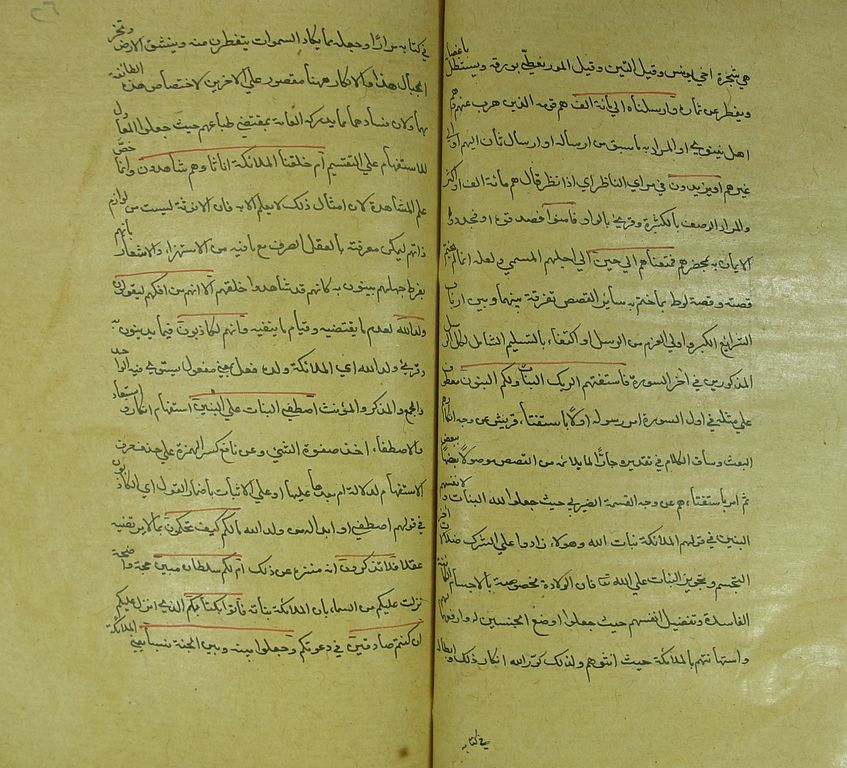 هي شجرة اخي يونس وقيل التين وقيل الموز يغطي بورقه ويستظل باغصانه
ويفطر عن ثماره وارسلناه الى مائة الف هم قومه الذين هرب عنهم وهم
اهل نينوى او المراد به ما سبق من ارساله او ارسال ثان اليهم او الى
غيرهم او يزيدون في مراى الناظر اي اذا نظر قال هم مائة الف او اكثر
والمراد الوصف بالكثرة وقرئ بالواو فامنوا فصدقوه او فجددوا
الايمان به بمحضره فمتعناهم الى حين الى اجلهم المسمى ولعله انما لم يختم
قصته وقصة لوط بما ختم به ساير القصص تفرقة بينهما وبين ارباب
الشرايع الكبر واولي العزم من الرسل او اكتفاء بالتسليم الشامل لكل الرسل
المذكورين في اخر السورة فاستفتهم الربك البنات ولهم البنون معطوف
على مثله في اول السورة امر رسوله اولا باستفتاء قريش عن وجه انكارهم
البعث وساق الكلام في تقديره جارا لما يلائمه من القصص موصولا بعضها ببعض
ثم امر باستفتائهم عن وجه القسمة الضيزى حيث جعلوا لله البنات ولانفسهم
البنين في قولهم الملائكة بنات الله وهولاء زادوا على الشرك ضلالات اخر
التجسيم وتجويز البنات على الله تعا فان الولادة مخصوصة بالاجسام الكائنة
الفاسدة وتفضيل انفسهم حيث جعلوا اوضع الجنسين له وارفعهما لهم
واستهانتهم بالملائكة حيث انثوهم ولذلك كرر الله انكار ذلك وابطاله
في كتابه
في كتابه مرارا وجعله مما يكاد السموات يتفطرن منه وينشق الارض وتخر
الجبال هدا والانكار ههنا مقصور على الاخرين لاختصاص هذه الطائفة
بهما ولان فسادهما مما يدركه العامة بمقتضى طباعهم حيث جعلوا المعادل
للاستفهام على التقسيم ام خلقنا الملائكة اناثا وهم شاهدون وانما خص
علم المشاهدة لان امثال ذلك لا يعلم الا به فان الانوثة ليست من لوازم
ذاتهم ليمكن معرفته بالعقل الصرف مع ما فيه من الاستهزاء والاشعار بانهم
لفرط جهلهم يبتون به كانهم قد شاهدوا خلقهم الا انهم من افكهم ليقولون
ولد الله لعدم ما يقتضيه وقيام ما ينفيه وانهم لكاذبون فيما يدينون به
وقرئ ولد الله اي الملائكة ولده فعل بمعنى مفعول يستوي فيه الواحد
والجمع والمذكر والمؤنث اصطفى البنات على البنين استفهام انكار واستبعاد
والاصطفاء اخذ صفوة الشئ وعن نافع كسر الهمزة على حذف حرف
الاستفهام لدلالة ام بعدها عليها او على الاثبات باضمار القول اي لكاذبون
في قولهم اصطفى او ابداله من ولد الله مالكم كيف تحكمون بما لا يرتضيه
عقل افلا تذكرون انه منزه عن ذلك ام لكم سلطان مبين حجة واضحة
نزلت عليكم من السماء بان الملائكة بناته فأتوا بكتابكم الذي انزل عليكم
ان كنتم صادقين في دعوتكم وجعلوا بينه وبين الجنة نسبا يعني الملائكة